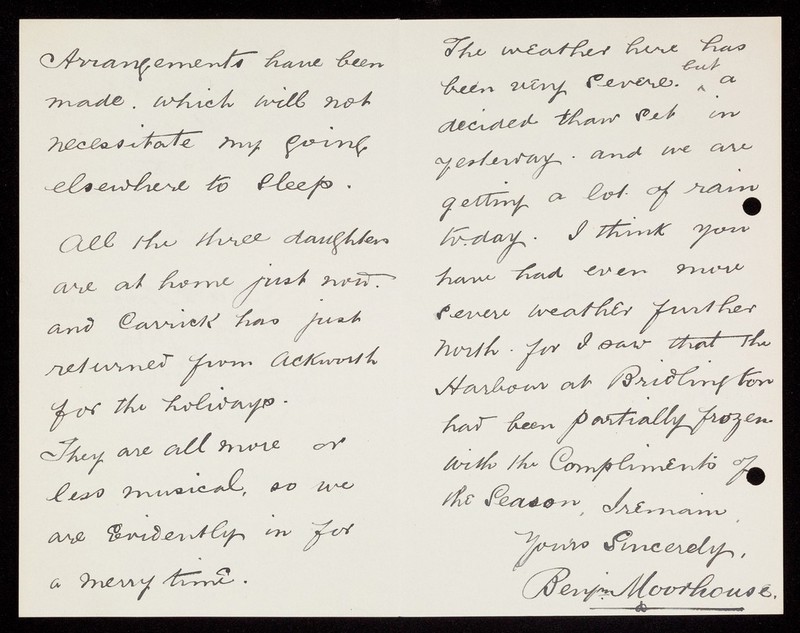 Arrangements have been
made. which will not
necessitate my going
elsewhere to sleep.
All the three daughters
are at home just now.
and Carrick has just
returned from Ackworth
for the holidays.
They are all more or
less musical, so we
are Evidently in for
a merry time.
The weather here has
been very severe. but a
decided thaw set in
yesterday. and we are
getting a lot of rain
to.day. I think you
have had even more
severe weather further
North. for I saw that the
Harbour at Bridlington
had been partially frozen.
with the Compliments of
the Season, I remain,
Yours Sincerely,
Benjn Moorhouse.